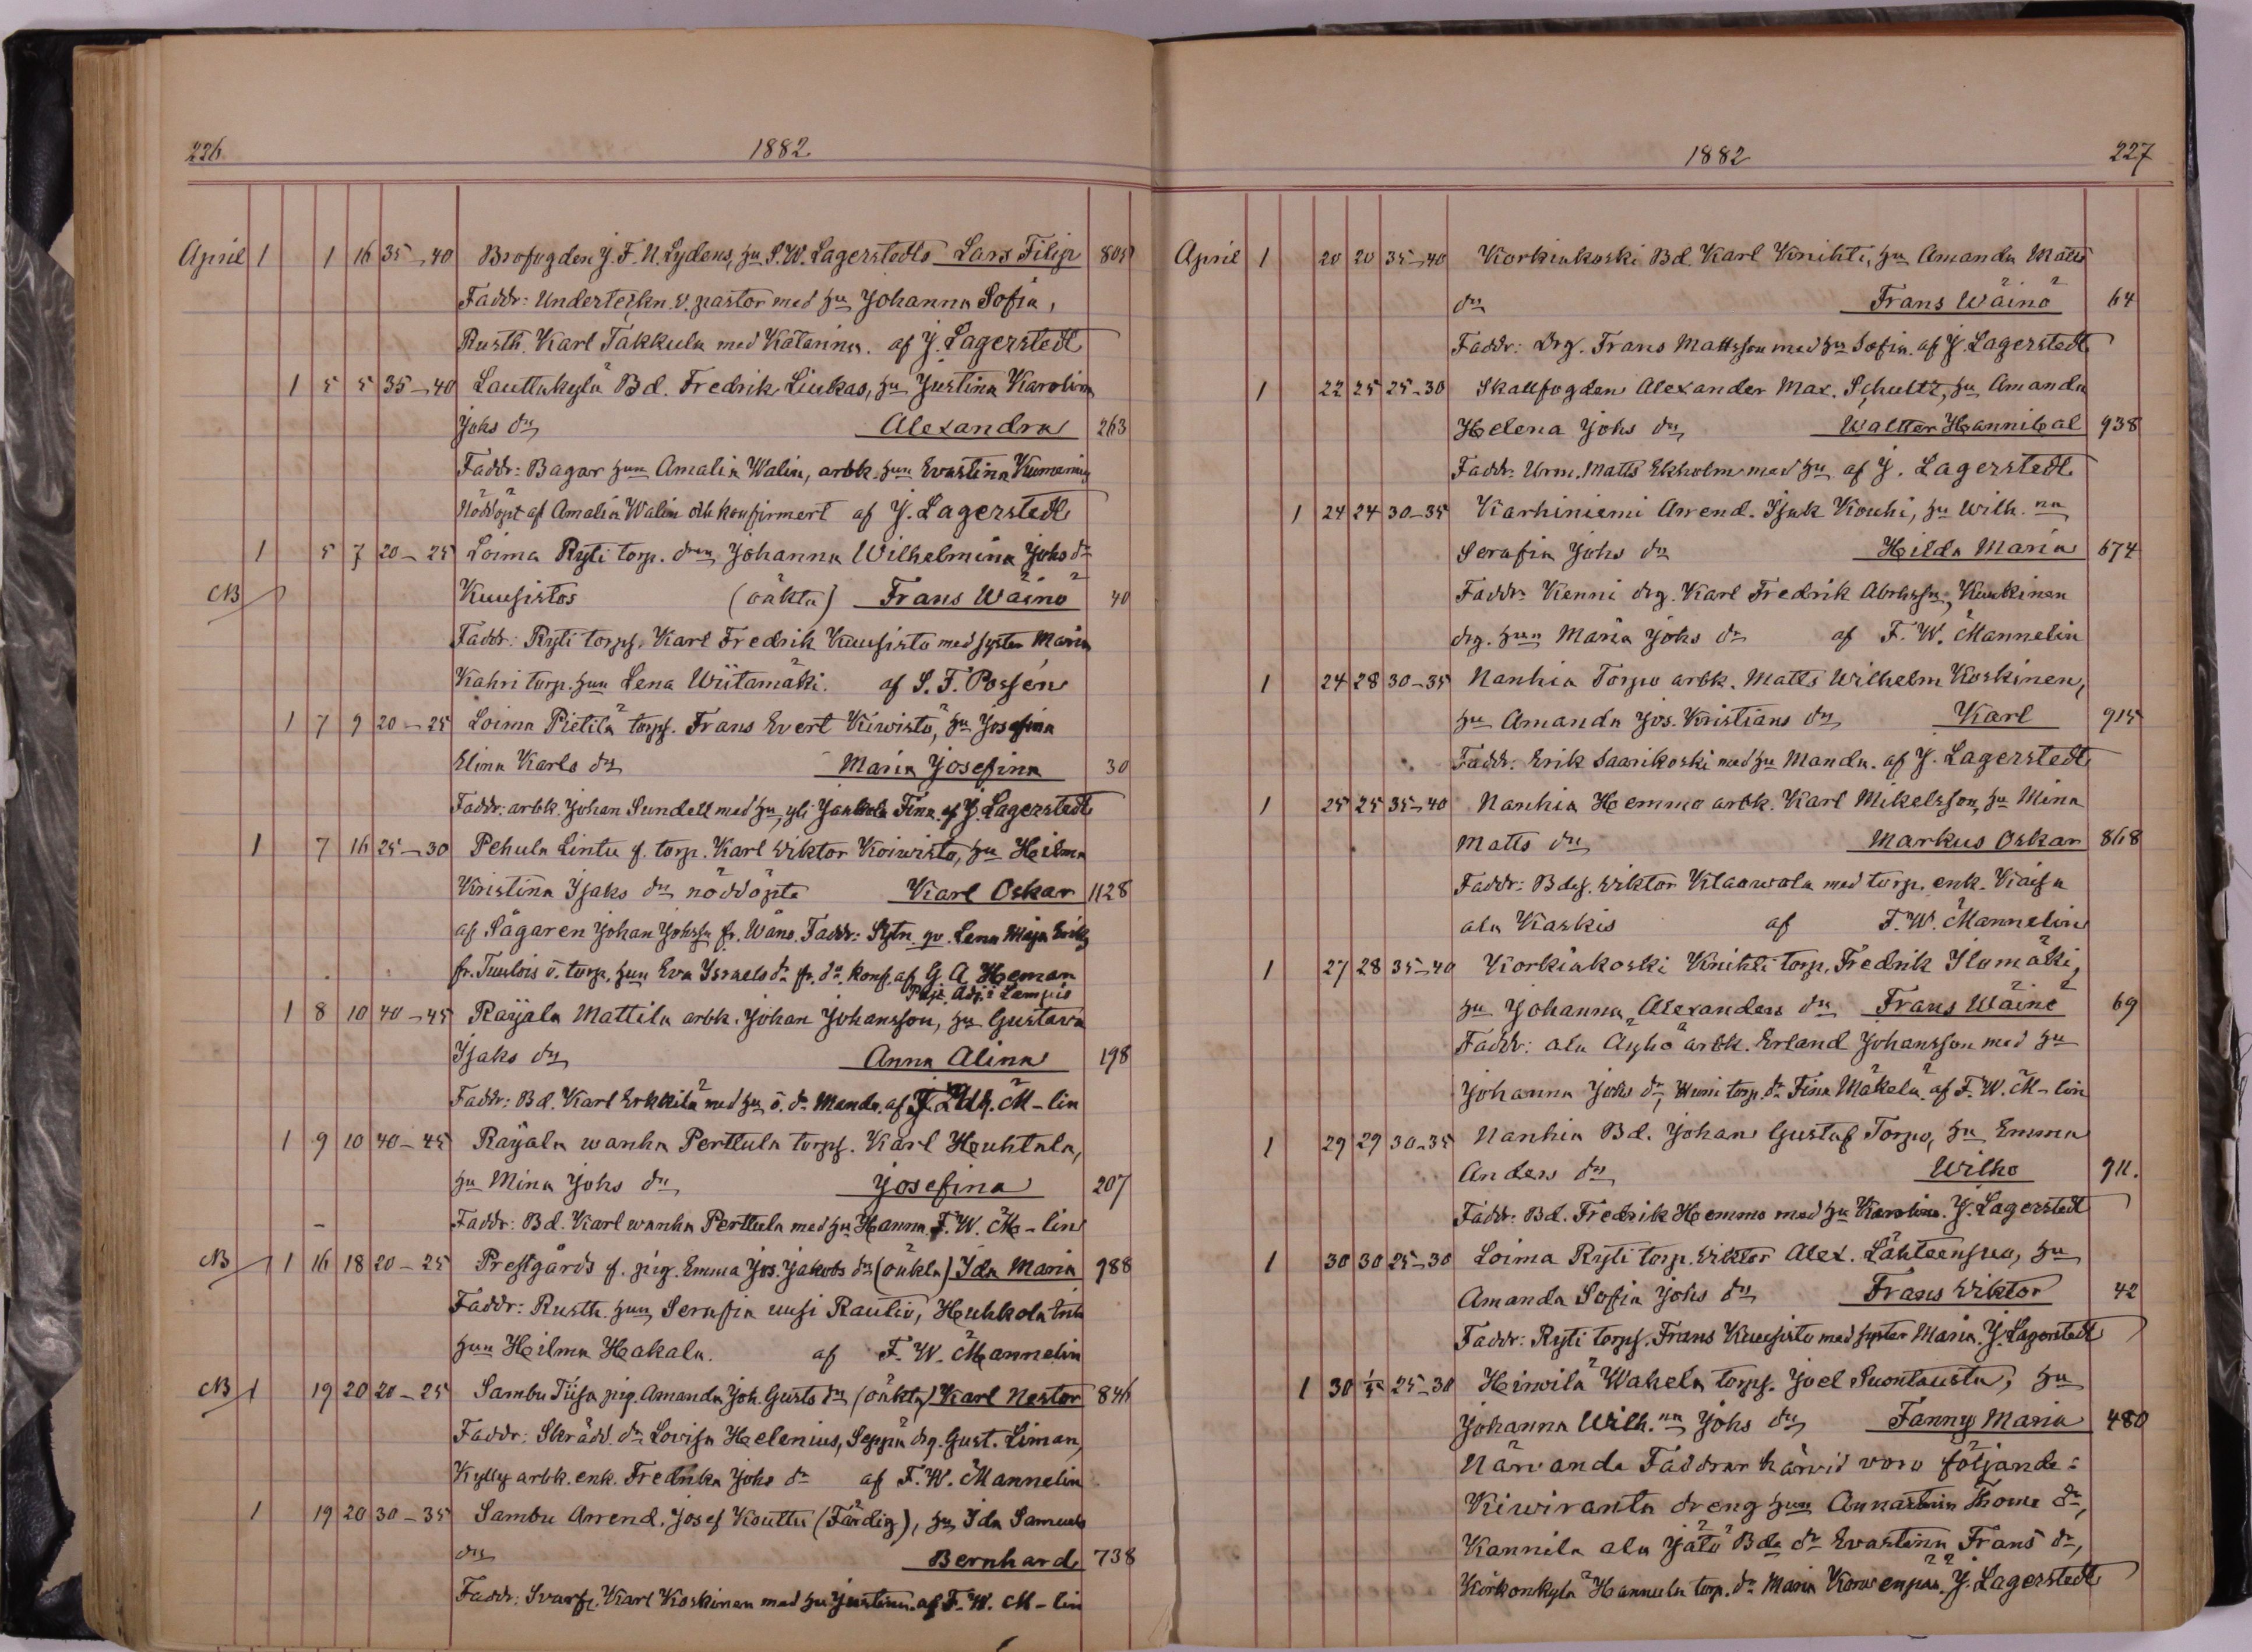 226
1882
April 1 1 16 35-40 Brofogden J. F. N. Lydens, hu S. W. Lagerstedts Lars Filip 805
Faddr: Underteckn. v. pastor med hu Johanna Sofia,
Rusth. Karl Takkula med Katarina. af J. Lagerstedt
1 5 5 35-40 Lauttakylä Bd. Fredrik Liukas, hu Justina Karolina
Johs dr Alexandra 263
Faddr: Bagar hun Amalia Walin, arbk. hun Evastina
Nöddöpt af Amalia Walin och konfirmert af J. Lagerstedt
1 5 7 20-25 Loima Ryti torp. dren Johanna Wilhelmina Johs dr
NB Kuusistos (oäkta) Frans Wäinö 40
Faddr: Ryti torps. Karl Fredrik Kuusisto med syster Maria
Kahri torp. hun Lena Wiitamäki. af S. F. Possén
1 7 9 20-25 Loima Pietilä torps. Frans Evert Kiwistö, hu Josefina
Elina Karls dr Maria Josefina 30
Faddr: arbk. Johan Sundell med hu, yli Jaakola Fina. af J. Lagerstedt
1 7 16 25-30 Pehula Lintu f. torp. Karl Wiktor Koiwisto, hu Hilma
Kristina Isaks dr nöddöpte Karl Oskar 1128
af Sågaren Johan Johssn fr. Wånå. Faddr: Sytn. qv. Lena Maja Eriks
fr. Tuulois o. torp. hun Eva Israels dr fr. do. konf. af G. A. Heman
Past. Adj. i Lampis
1 8 10 40-45 Raijala Mattila arbk. Johan Johansson, hu Gustava
Isaks dr Anna Alina 198
Faddr: Bd. Karl Erkkilä med hu o. dr Manda. af F. W. M-lin
1 9 10 40-45 Raijala wanha Perttula torps. Karl Houhtala,
hu Mina Johs dr Josefina 207
Faddr: Bd. Karl wanha Perttula med hu Hanna. F. W. M-lin
NB 1 16 18 20-25 Prestgårds f. pig. Emma Jos. Jakobs dr (oäkta) Ida Maria 988
Faddr: Rusth. hun Serafia uusi Rautio, Huhkola
hun Hilma Hakala. af F. W. Mannelin
NB 1 19 20 20-25 Sambu Tiisa pig. Amanda Joh. Gusts dr (oäkta) Karl Nestor 846
Faddr: Skrädd. dr Lovisa Helenius, Seppä drg. Gust. Liman,
Kylly arbk. enk. Fredrika Johs dr af F. W. Mannelin
1 19 20 30-35 Sambu Arrend. Josef Kouttu (Färdig), hu Ida Samuels
dr Bernhard 738
Faddr: Svarf. Karl Koskinen med hu Justina. af F. W. M-lin
1882
227
April 1 20 20 35-40 Korkiakoski Bd. Karl Knihti, hu Amanda Matts
dr Frans Wäinö 64
Faddr: Drg. Frans Mattsson med hu Sofia. af J. Lagerstedt
1 22 25 25-30 Skallfogden Alexander Max. Schultz, hu Amanda
Helena Johs dr Waltter Hannibal 938
Faddr: Urm. Matts Ekholm med hu af J. Lagerstedt
1 24 24 30-35 Karhiniemi Arrend. Isak Kouhi, hu Wilh. na
Serafia Johs dr Hilda Maria 674
Faddr: Kenni drg. Karl Fredrik Abrhssn, Kuukinen
drg. hun Maria Johs dr af F. W. Mannelin
1 24 28 30-35 Nanhia Torpo arbk. Matts Wilhelm Koskinen,
hu Amanda Jos. Kristians dr Karl 915
Faddr: Erik Saarikoski med hu Manda. af J. Lagerstedt
1 25 25 35-40 Nanhia Hemmo arbk. Karl Mikelsson, hu Mina
Matts dr Markus Oskar 868
Faddr: Bdes. Wiktor Klaawola med torp. enk. Kaisa
ala Kaskis af F. W. Mannelin
1 27 28 35-40 Korkiakoski Knihti torp. Fredrik Ilomäki,
hu Johanna Alexanders dr Frans Wäinö 69
Faddr: ala Äyhö arbk. Erland Johansson med hu
Johanna Johs dr, torp. dr Fina Mäkelä. af F. W. M-lin
1 29 29 30-35 Nanhia Bd. Johan Gustaf Torpo, hu Emma
Anders dr Wilho 911.
Faddr: Bd. Fredrik Hemmo med hu Karolina. J. Lagerstedt
1 30 30 25-30 Loima Ryti torp. Wiktor Alex. Lähteensuo, hu
Amanda Sofia Johs dr Frans Wiktor 42
Faddr: Ryti torps. Frans Kuusisto med syster Maria. J. Lagerstedt
1 30 1/5 25-30 Hinvilä Wahela torps. Joel Suontausta, hu
Johanna Wilh. na Johs dr Fanny Maria 480
Närvande Faddrar härvid voro följande:
Kiwiranta dreng hun Annastina Thome dr,
Kannila ala Jätö Bde dr Evastina Frans dr,
Kirkonkylä Hannula torp. dr Maria Korvenpää. J. Lagerstedt